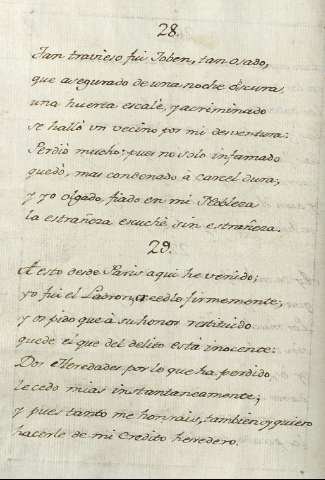 28.
Tan travieso fui Joben, tan osado,
que asegurado de una noche oscura
una huerta escalè, y acriminado
se hallò vn vecino por mi desventura:
Perdiò mucho: pues no solo infamado
quedò, mas condenado à carcel dura;
y yo olgado, fiado en mi Nobleza
la estrañeza escuchè sin estrañeza.
29.
A esto desde Paris aqui he venido;
yo fui el Ladron, creedlo firmemente,
y os pido que à su honor restituido
quede el que del delito està inocente:
Dos Heredades por lo que ha perdido
le cedo mias instantaneamente;
y pues tanto me honrais, tambien oy quiero
hacerle de mi Credito heredero.